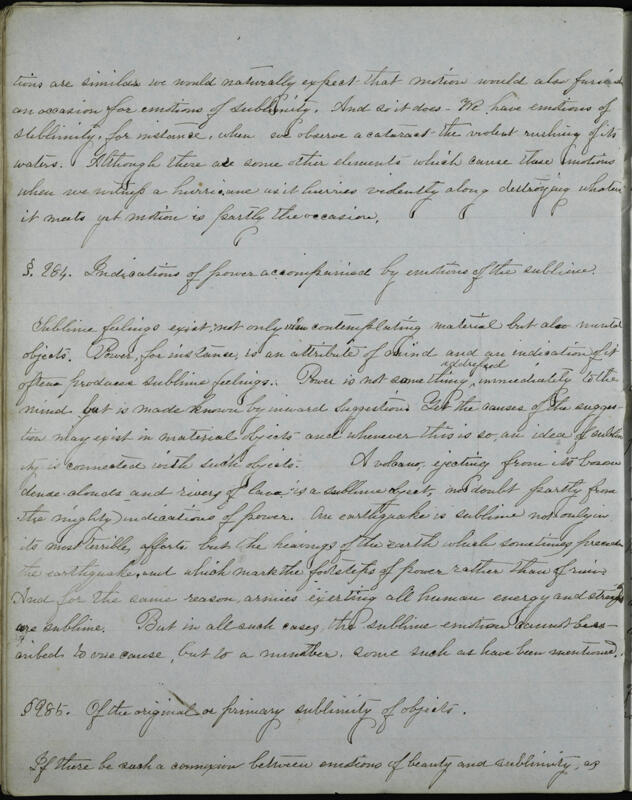 tions are similar we would naturally expect that motion would also furnish
an occasion for emotions of sublimity. And so it does. We have emotions of
sublimity, for instance, when we observe a cataract the violent rushing of its
waters. Although there are some other elements which cause these emotions
when we witness a hurricane as it hurries violently along destroying whatever
it meets yet motion is partly the occasion.
§. 284. Indications of power accompanied by emotions of the sublime.
Sublime feelings exist, not only in contemplating material but also mental
objects. Power, for instance, is an attribute of mind and an indication of it
often produces sublime feelings. Power is not something addressed immediately to the
mind, but is made known by inward suggestion. Yet the causes of the sugges-
tion may exist in material objects and whenever this is so, an idea of sublim
ity is connected with such objects. A volcano, ejecting from its bosom
dense clouds and rivers of lava is a sublime object, no doubt partly from
the mighty indications of power. An earthquake is sublime not only in
its most terrible efforts but the heavings of the earth which sometimes precede
the earthquake, and which mark the footsteps of power rather than of ruin.
And for the same reason, armies exerting all human energy and strength
are sublime. But in all such cases, the sublime emotion cannot be as-
cribed to one cause, but to a number, some such as have been mentioned.
§ 285. Of the original or primary sublimity of objects.
If there be such a connexion between emotions of beauty and sublimity, as